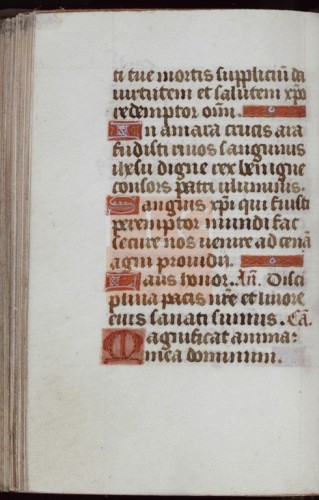 ti tue mortis suppliciū da
virtutem et salutem xp̄o
redemptor om̄.
In amara crucis ara
fudisti rivos sanguinis
ihesu digne rex benigne
consors patri
Sanguis xp̄i qui fuisti
peremptor mundi fac
secure nos venire ad cenā
agni
Laus honor. Añ. Disci
plina pacis nr̄e et livore
eius sanati sumus. Cā.
Magnificat anima:
mea dominum.